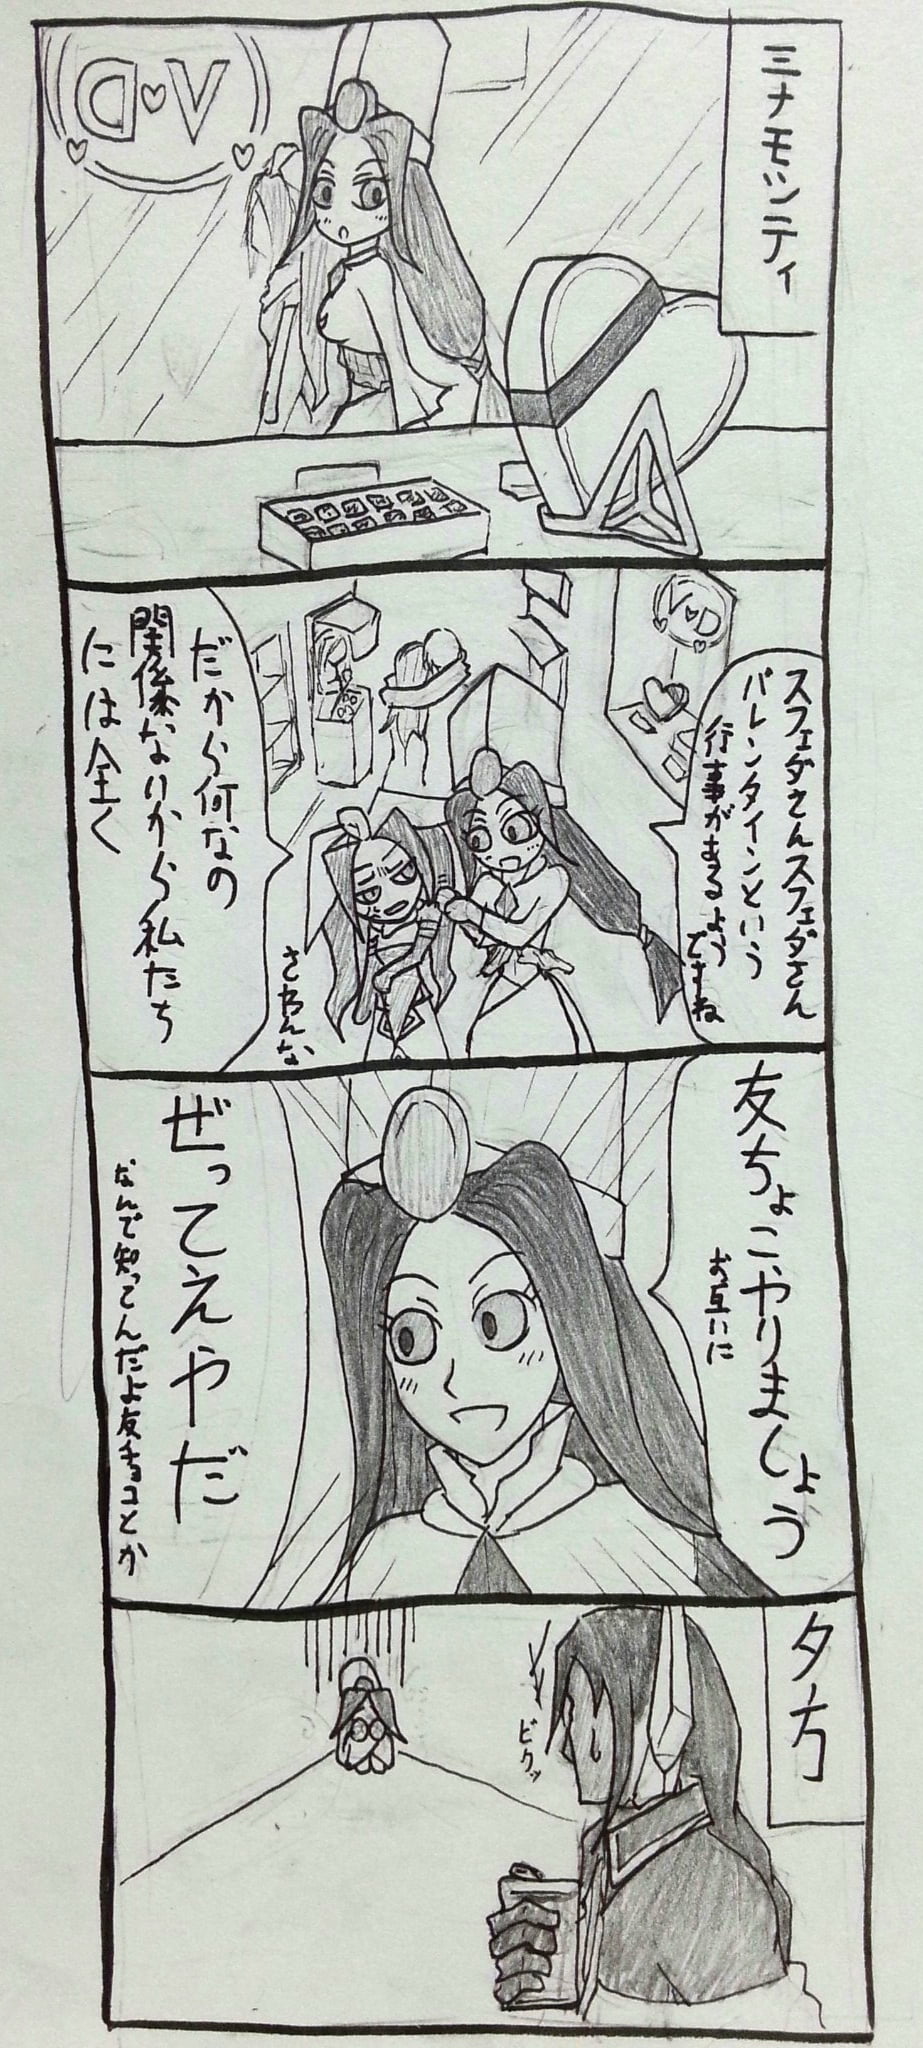 ミナモシティ
V♥D
スフェダさんスフェダさん
バレンタインという
行事があるよう
ですね
V♥D
だから何なの
関係ないから私たち
には全く
さわんな
友ちょこやりましょう
お互いに
ぜってえやだ
なんで知ってんだよ友チョコとか
夕方
ビクッ